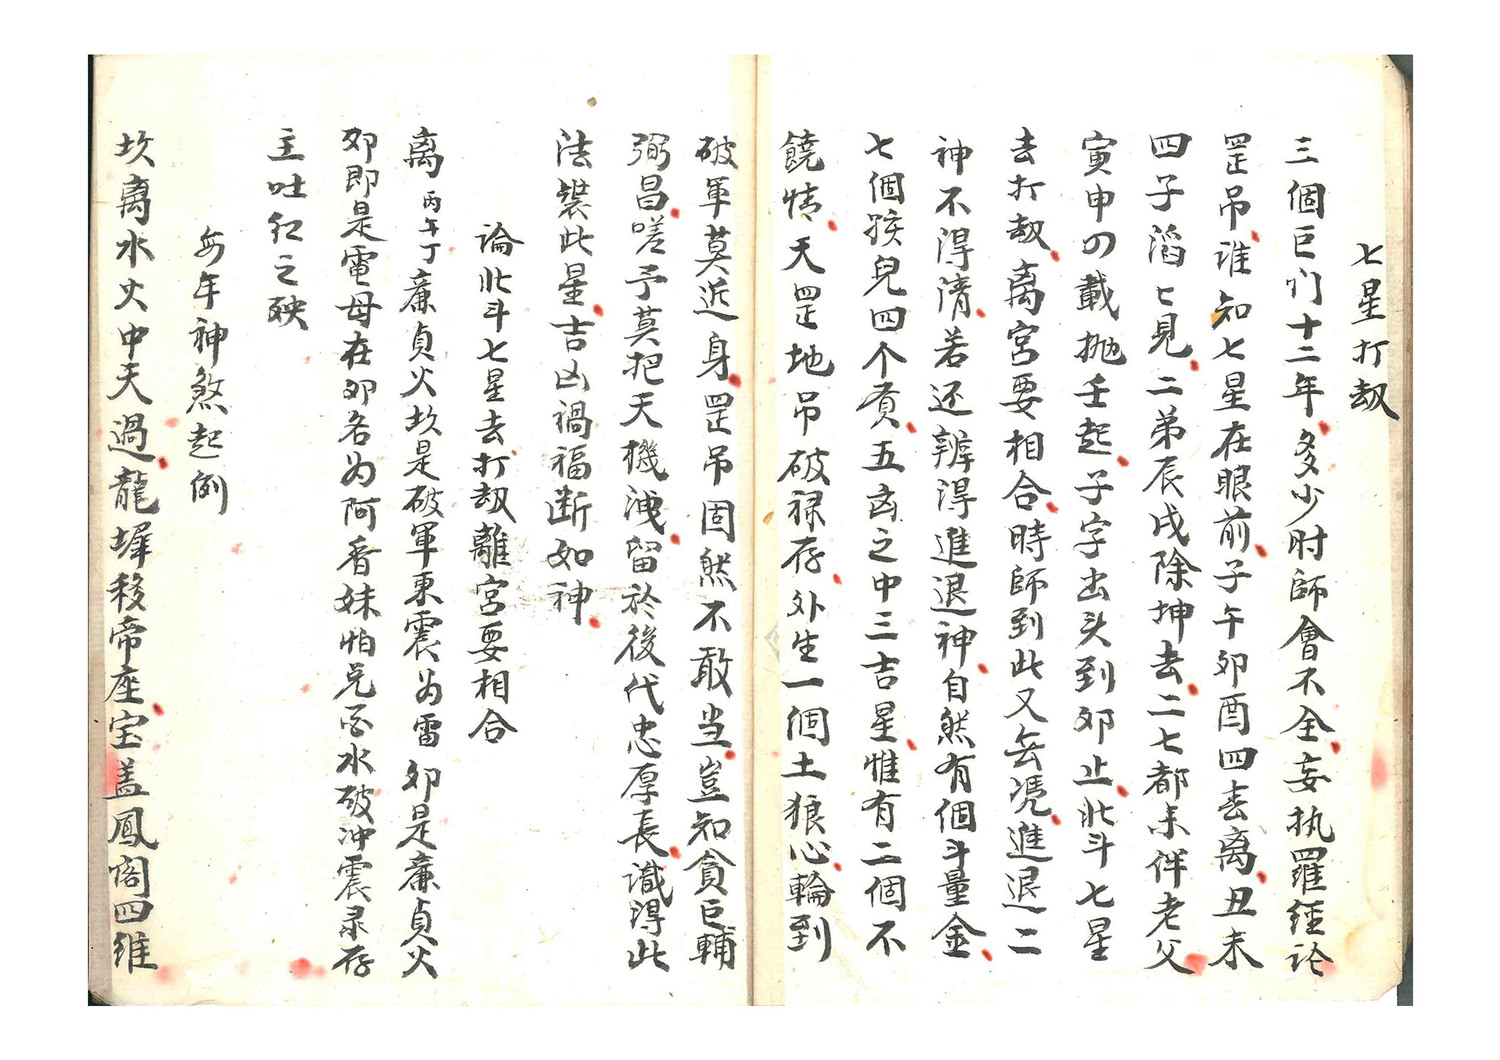 七星打刼
三個巨门十二年多少时師會不全妄执羅経论
罡吊谁知七星在眼前子午卯酉四去离丑未
四子滔七見二弟辰戌除坤去二七都未伴老父
寅申の載抛壬起子字出头到卯止北斗七星
去打刼离宮要相合時師到此又無凴進退二
神不淂清若还辨淂進退神自然有個斗量金
七個孩兒四个貢五凶之中三吉星惟有二個不
饒情天罡地吊破禄存外生一個土狼心輪到
破軍莫近身罡吊固然不敢当豈知貪巨輔
弼昌嗟予莫把天機洩留於後代忠厚長識淂此
法裝此星吉凶禍福断如神
論北斗七星去打刼離宮要相合
离丙午丁廉貞火坎是破軍東震为雷卯是廉貞火
卯即是電母在卯名为阿香妹怕兑酉水破冲震录存
主吐红之殃
每年神煞起例
坎离水火中天過龍墀移帝座宝盖鳳阁四维